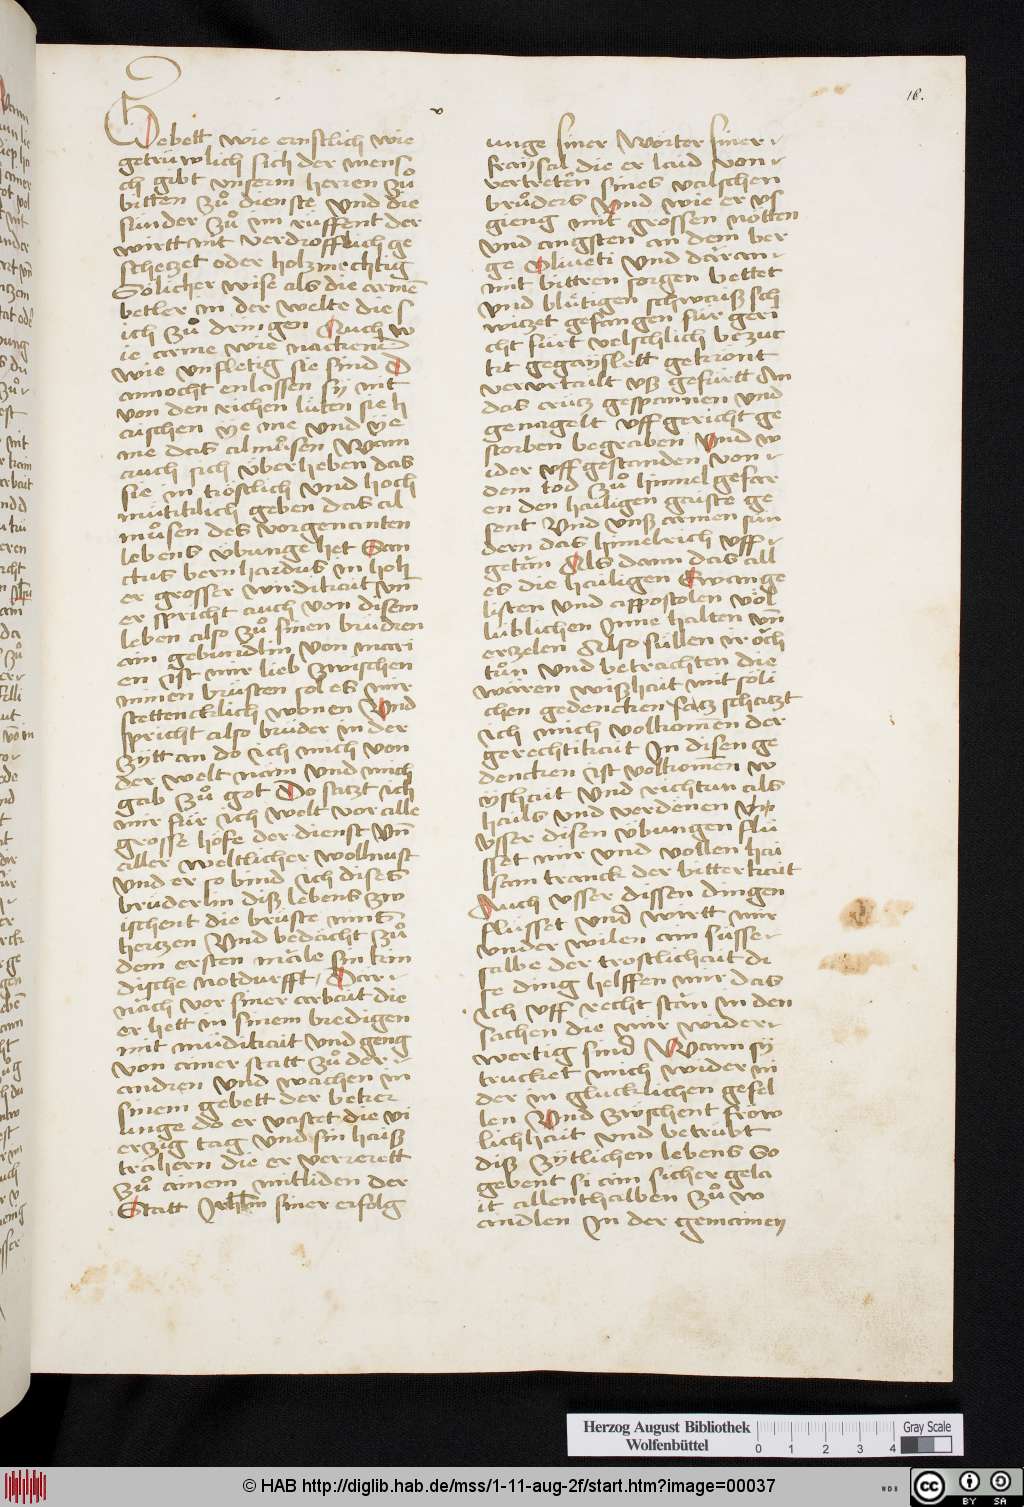 18.
Gebett wie ernstlich wie
getrüwlich sich der mens
ch gibt vnserm herren zuͦ
bitten zuͦ dienste vnd die
sünder zuͦ im rüffent der
wirtt nit verdrossenlich ge
schetzet oder holzmechtig
Sölicher wise als die armē
betler in der welte die s
ich zuͦ dringen Auch w
ie arme wie nackend
wie vnfletig sie sind D
annocht enlassen sy nit
von den richen lüten sie h
aischen ye me vnd ye
me das almuͦsen Wann
auch sich überheben das
sie in tröstlich vnd hoch
mütiklich geben das al
muͦsen des vorgenanten
lebens übunge het San
ctus bernhardus in hoh
er grosser wirdikait vn̄
er spricht auch von disem
leben also zuͦ sinen brüdren
ain gebündlin von mari
en ist mir lieb zwischen
minen brüsten sol es mir
stettencklich wonen Vnd
spricht also brüder in der
zytt an do ich mich von
der welt nam vnd mich
gab zuͦ got Do satzt ich
mir für ich wolt vor alle
grosse höfe der dienst vn̄
aller weltlicher wollnust
vnd er so bind ich dises
brüderlin diß lebens zw
ischent die brüste mins
hertzen Vnd bedächt zuͦ
dem ersten mäle sin kin
dische notdurfft Dar
näch vor siner arbait die
er hett in sinem bredigen
mit müdikait vnd geng
von ainer statt zuͦ der
andren vnd wachen in
sinem gebett der betrer
linge do er vastet die vi
erzig tag vnd sin haiß
trähern die er verrerett
zuͦ ainem mitliden der
Statt Jrhlm siner erfolg
unge siner Wörter siner
fraÿsal die er laid von
vertreten sines valschen
bruͦders Vnd wie er vs
gieng mit grossen nötten
vnd angsten an dem ber
ge Oliueti vnd daran
mit bittren sorgen bettet
vnd blütigen schwaiß sch
witzet gefangen für geri
cht fürt velschlich bezuc
kt gegaÿslett gekrönt
vervrtailt vß gefürtt An
das crütz gespannen vnd
genagelt vff gericht ge
storben begraben Vnd w
ider vff gestanden von
dem tod zuͦ himel gefar
en den hailigen gaiste ge
sent Vnd vnß armen sün
dern das himelrich vff
getän Als dann das all
es die hailigen Ewange
listen vnd appostolen völ
liklichen Jnne halten vn̄
erzelen Also süllen ir och
tuͦn vnd betrachten die
waren wißhait mit söli
chen gedencken satz schatzt
ich mich volkomen der
gerechtikait Jn disen ge
dencken ist volkomēn w
ÿßhait vnd richtun als
hails vnd verdenen Vn̄
vsser disen übungen flü
sset mir vnd vollen hai
lsam tranck der bitterkait
Auch vsser dissen dingen
flüsset vnd wirtt mir
vnder wilen ain süsse
salbe der tröstlichait di
se ding helffen mir das
ich vff recht stän in den
sachen die mir wider
wertig sind Wann sy
trucket mich wider ni
der in glücklichen gefel
len Vnd zwischent fröw
lichhait vnd betrübt
diß zÿtlichen lebens So
gebent si ain sicher gela
it allenthalben zuͦ w
andlen Jn der gemainen
Herzog August Bibliothek
Wolfenbüttel
0 1 2 3 4
Gray Scale
© HAB http://diglib.hab.de/mss/1-11-aug-2f/start.htm?image=00037
WDB
cc BY SA